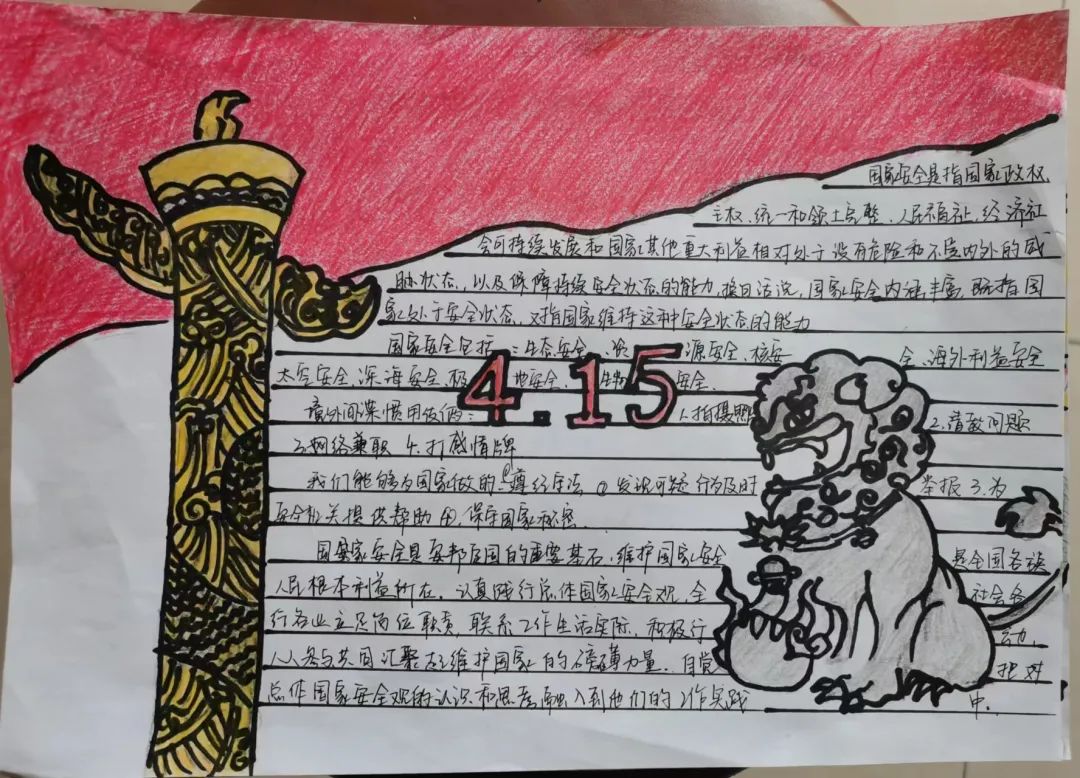 国家安全是指国家政权、
主权、统一和领土完整、人民福祉、经济社
会可持续发展和国家其他重大利益相对处于没有危险和不受内外的威
胁状态，以及保障持续安全状态的能力，换句话说，国家安全内涵丰富，既指国
家处于安全状态，又指国家维持这种安全状态的能力
国家安全包括：生态安全、资源安全、核安全、海外利益安全
太空安全、深海安全、极地安全、生物安全、
4.15
境外间谍惯用伎俩： 1、拍摄 2、请教问题
3、网络兼职 4、打感情牌
我们能够为国家做的①遵纪守法 ②发现可疑行为及时举报 3、为
安全机关提供帮助④、保守国家秘密、
国家安全是安邦定国的重要基石，维护国家安全是全国各族
人民根本利益所在。认真践行总体国家安全观，全社会各
行各业立足岗位职责，联系工作生活实际，积极行动，
人人参与共同汇聚起维护国家的磅礴力量。自觉把对
总体国家安全观的认识和思考融入到他们的工作实践中。